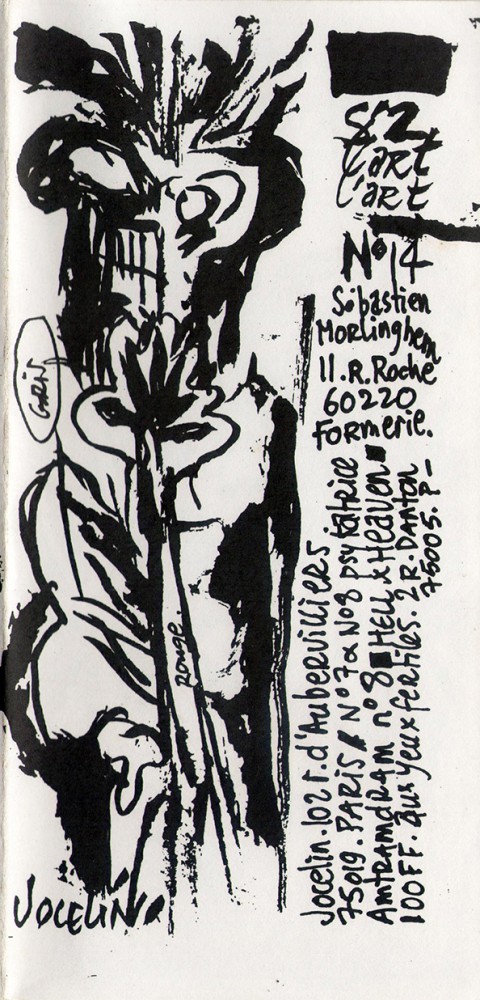 S'2
l'art
l'art
N°14
Sébastien
Morlinghem
11.R.Roche
60220
FORMERIE.
GRiS
ROUGE
Jocelin.102 r.d'Aubervilliers
75019.PARIS/N°7 & N°8 psykatrice
AmtRamdRam n°8 HELL & HeAVen
100FF. aux yeux fertiles. 2 R. DAnton
75005. P-
JOCELIN